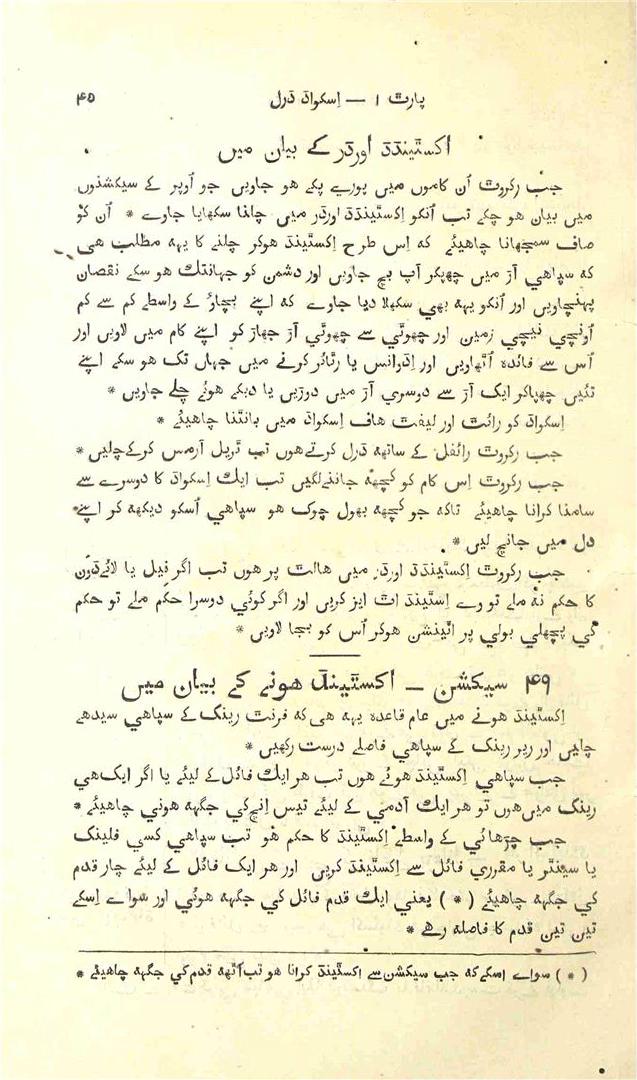 پارٹ ۱ — اِسکواڈ ڈرل ۴۵
اکسٹینڈڈ اورڈر کے بیان میں
جب رکروٹ اُن کاموں میں پورے پکے هو جاویں جو اُوپر کے سیکشنوں
میں بیان هو چکے تب اُنکو اِکسٹینڈڈ اورڈر میں چلنا سکھایا جاوے * اُن کو
صاف سمجهانا چاهیئے که اِس طرح اِکسٹینڈ هوکر چلنے کا یهه مطلب هی
که سپاهي آڑ میں چهپکر آپ بچ جاویں اور دشمن کو جهانتک هو سکے نقصان
پهنچاویں اور اُنکو یهه بهي سکهلا دیا جاوے که اپنے بچاؤ کے واسطے کم سے کم
اُونچي نیچي زمین اور چهوٹي سے چهوٹي آڑ جهاڑ کو اپنے کام میں لاویں اور
اُس سے فائده اُٹهاویں اور اِڈوانس یا رٹائر کرنے میں جهاں تک هو سکے اپنے
تئیں چهپاکر ایک آڑ سے دوسري آڑ میں دوڑیں یا دبکے هوئے چلے جاویں *
اِسکواڈ کو رائٹ اور لیفٹ هاف اِسکواڈ میں بانٹنا چاهیئے *
جب رکروٹ رائفل کے ساتهه ڈرل کرتے هوں تب ٹریل آرمس کرکے چلیں *
جب رکروٹ اِس کام کو کچهه جاننے لگیں تب ایک اِسکواڈ کا دوسرے سے
سامنا کرانا چاهیئے تاکه جو کچهه بهول چوک هو سپاهي اُسکو دیکهه کو اپنے
دل میں جانچ لیں *
جب رکروٹ اِکسٹینڈڈ اورڈر میں هالٹ پر هوں تب اگر نیل یا لائے ڈون
کا حکم نه ملے تو وے اِسٹینڈ اٹ ایز کریں اور اگر کوئي دوسرا حکم ملے تو حکم
کي پچهلي بولي پر اٹینشن هوکر اُس کو بجا لاویں *
۴۹ سیکشن — اکسٹینڈ هونے کے بیان میں
اِکسٹینڈ هونے میں عام قاعده یهه هی که فرنٹ رینک کے سپاهي سیدهے
چلیں اور ریر رینک کے سپاهي فاصلے درست رکهیں *
جب سپاهي اِکسٹینڈ هوئے هوں تب هر ایک فائل کے لیئے یا اگر ایک هي
رینک میں هوں تو هر ایک آدمي کے لیئے تیس اِنچ کي جگهه هوني چاهیئے *
جب چڑهائي کے واسطے اِکسٹینڈ کا حکم هو تب سپاهي کسي فلینک
یا سینٹر یا مقرري فائل سے اِکسٹینڈ کریں اور هر ایک فائل کے لیئے چار قدم
کي جگهه چاهیئے ( * ) یعني ایک قدم فائل کي جگهه هوئي اور سواے اِسکے
تین تین قدم کا فاصله رهے *
( * ) سواے اسکے که جب سیکشن سے اکسٹینڈ کرانا هو تب آٹهه قدم کي جگهه چاهیئے *